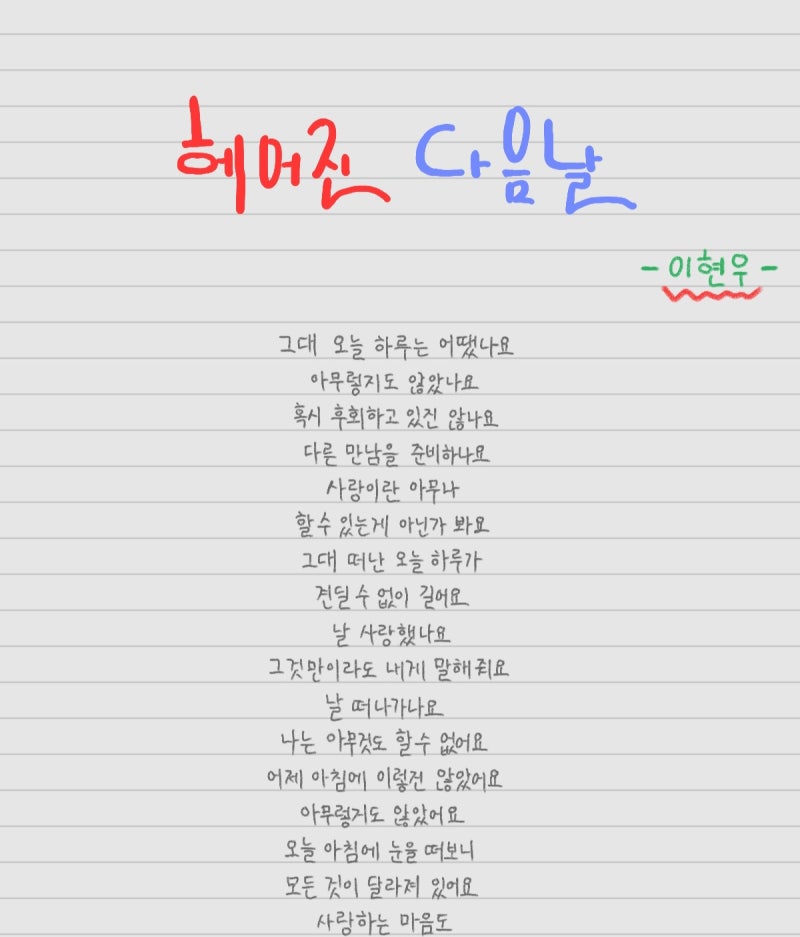 헤어진 다음날
- 이현우 -
그대 오늘 하루는 어땠나요
아무렇지도 않았나요
혹시 후회하고 있진 않나요
다른 만남을 준비하나요
사랑이란 아무나
할 수 있는게 아닌가 봐요
그대 떠난 오늘 하루가
견딜 수 없이 길어요
날 사랑했나요
그것만이라도 내게 말해줘요
날 떠나가나요
나는 아무것도 할 수 없어요
어제 아침에 이렇진 않았어요
아무렇지도 않았어요
오늘 아침에 눈을 떠보니
모든 것이 달라져 있어요
사랑하는 마음도